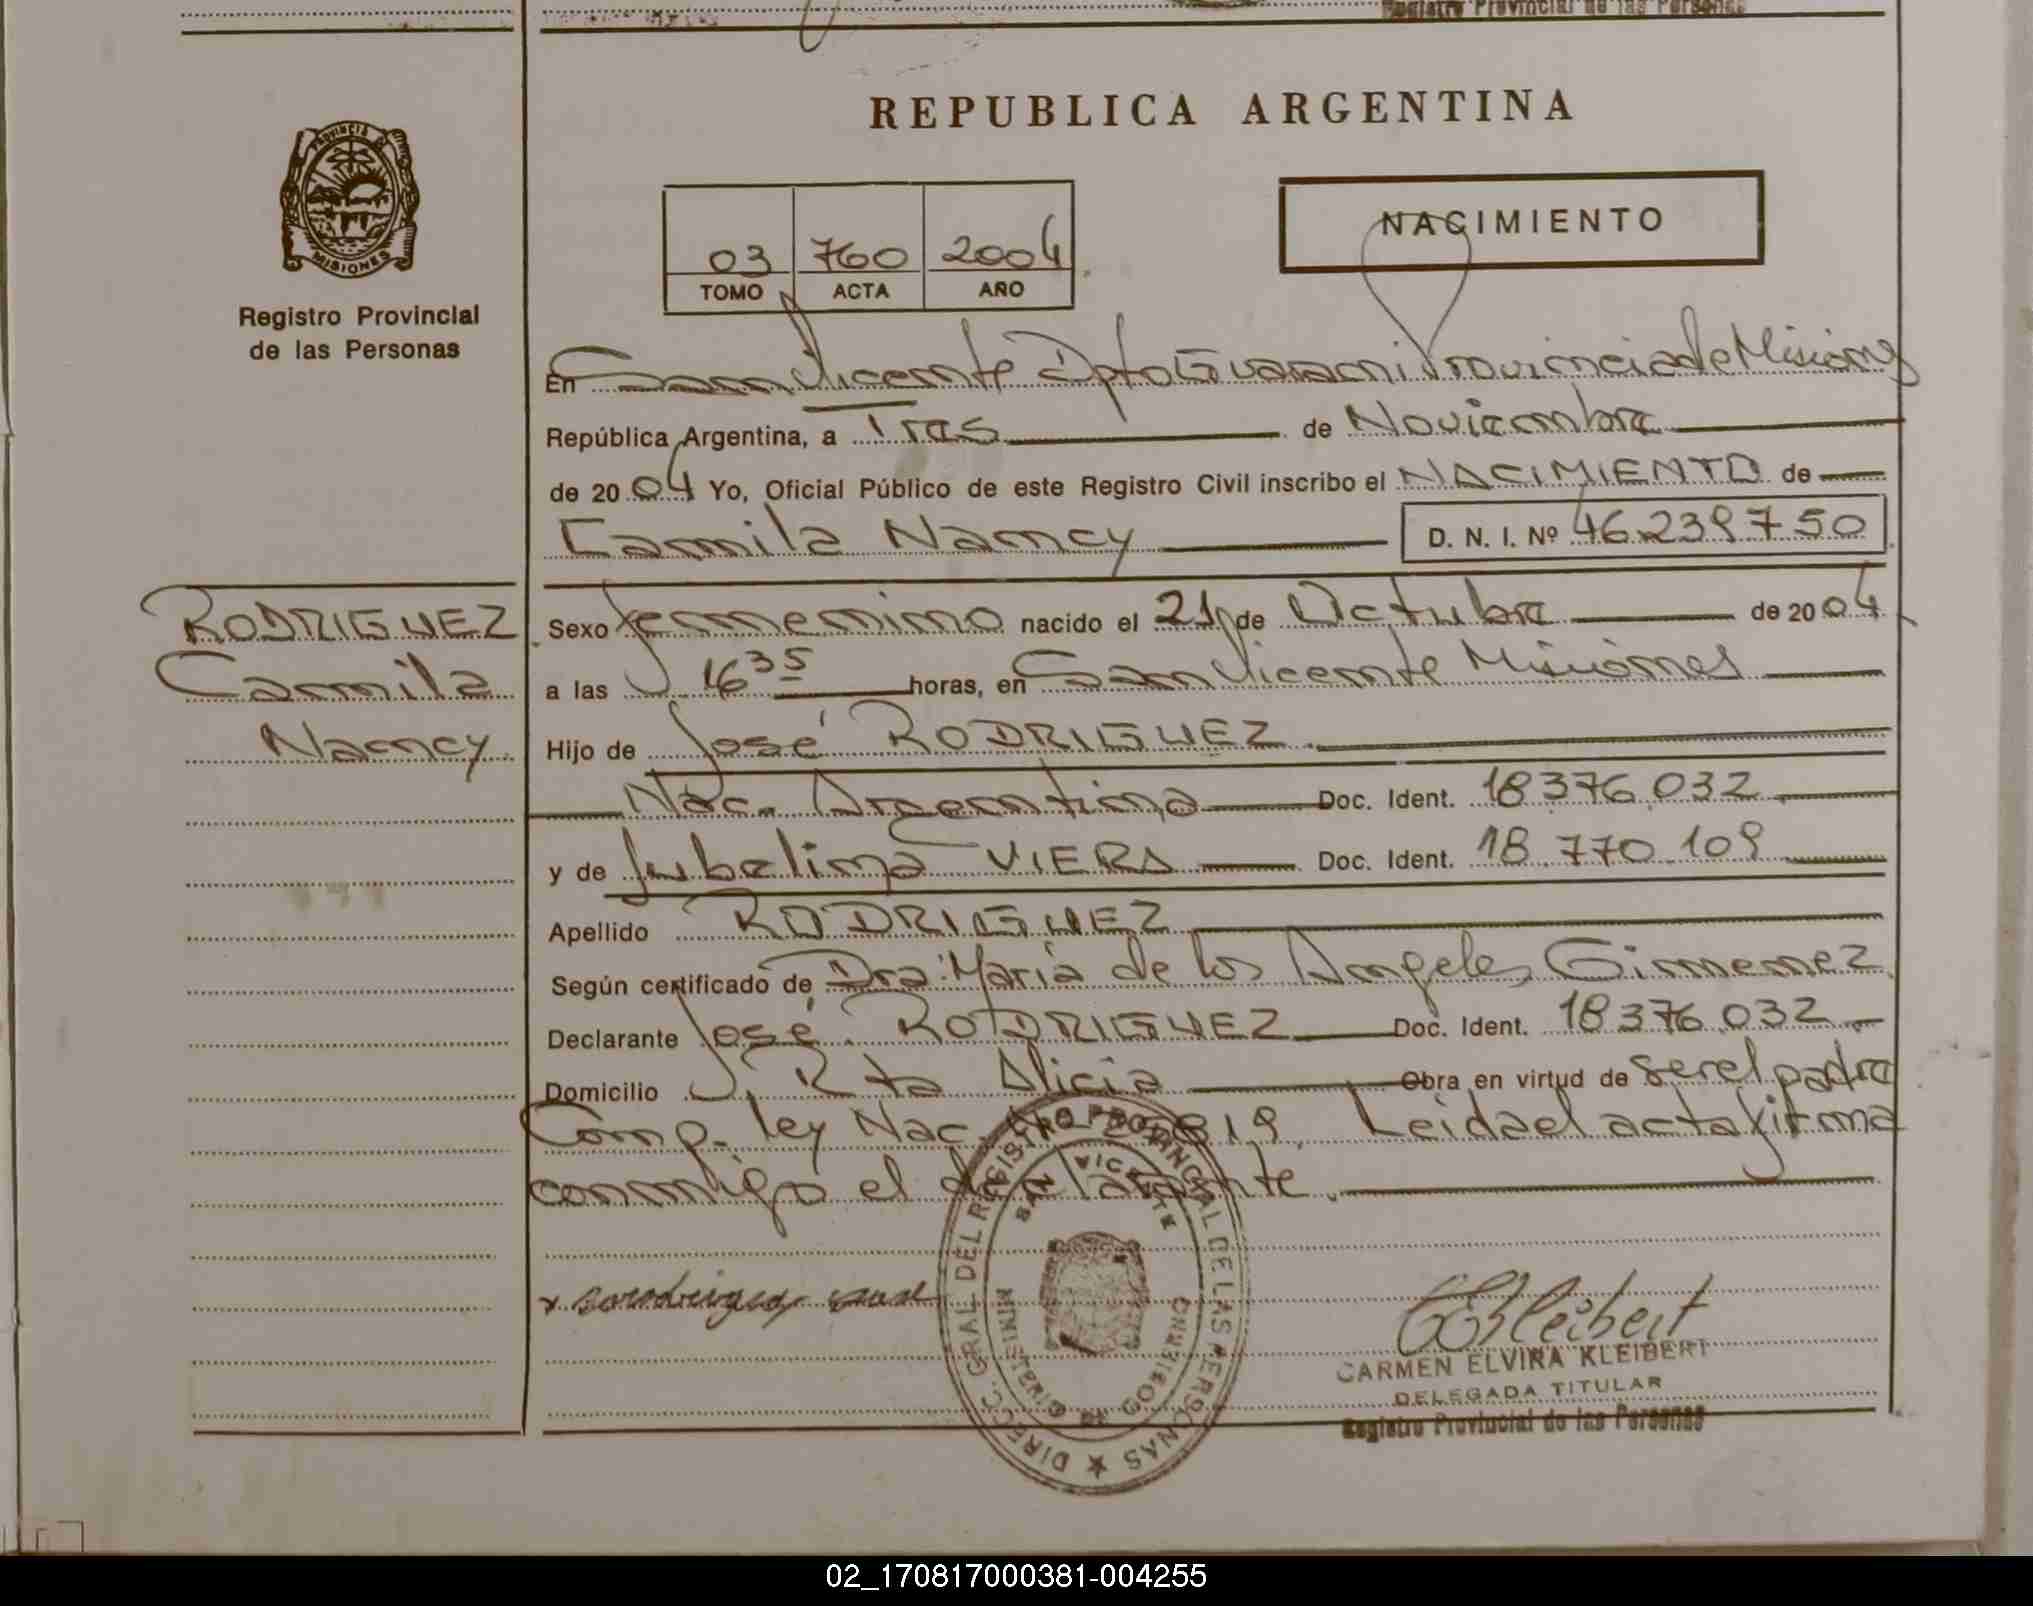 Registro Provincial de las Personas
PROVINCIA
MISIONES
Registro Provincial
de las Personas
REPUBLICA ARGENTINA
03 760 2004
TOMO ACTA AÑO
NACIMIENTO
En San Vicente Dpto Guarani Provincia de Misiones
República Argentina, a Tres de Noviembre
de 2004 Yo, Oficial Público de este Registro Civil inscribo el NACIMIENTO de
Camila Nancy D. N. I. Nº 46.239750
RODRIGUEZ
Camila
Nancy.
Sexo femenino nacido el 21 de Octubre de 2004
a las 16 35 horas, en San Vicente Misiones
Hijo de José RODRIGUEZ.
Nac. Argentina Doc. Ident. 18376.032
y de Jubelina VIERA Doc. Ident. 18.770.109
Apellido RODRIGUEZ
Según certificado de Dra: María de los Angeles Gimenez
Declarante José RODRIGUEZ Doc. Ident. 18376.032
Domicilio Rta Alicia Obra en virtud de ser el padre
Comp. ley Nac. Leida el acta firma
conmigo el declarante.
DIRECC. GRAL. DEL REGISTRO PROVINCIAL DE LAS PERSONAS
SAN VICENTE
MINISTERIO DE GOBIERNO
CEKleibert
CARMEN ELVIRA KLEIBERT
DELEGADA TITULAR
Registro Provincial de las Personas
02_170817000381-004255